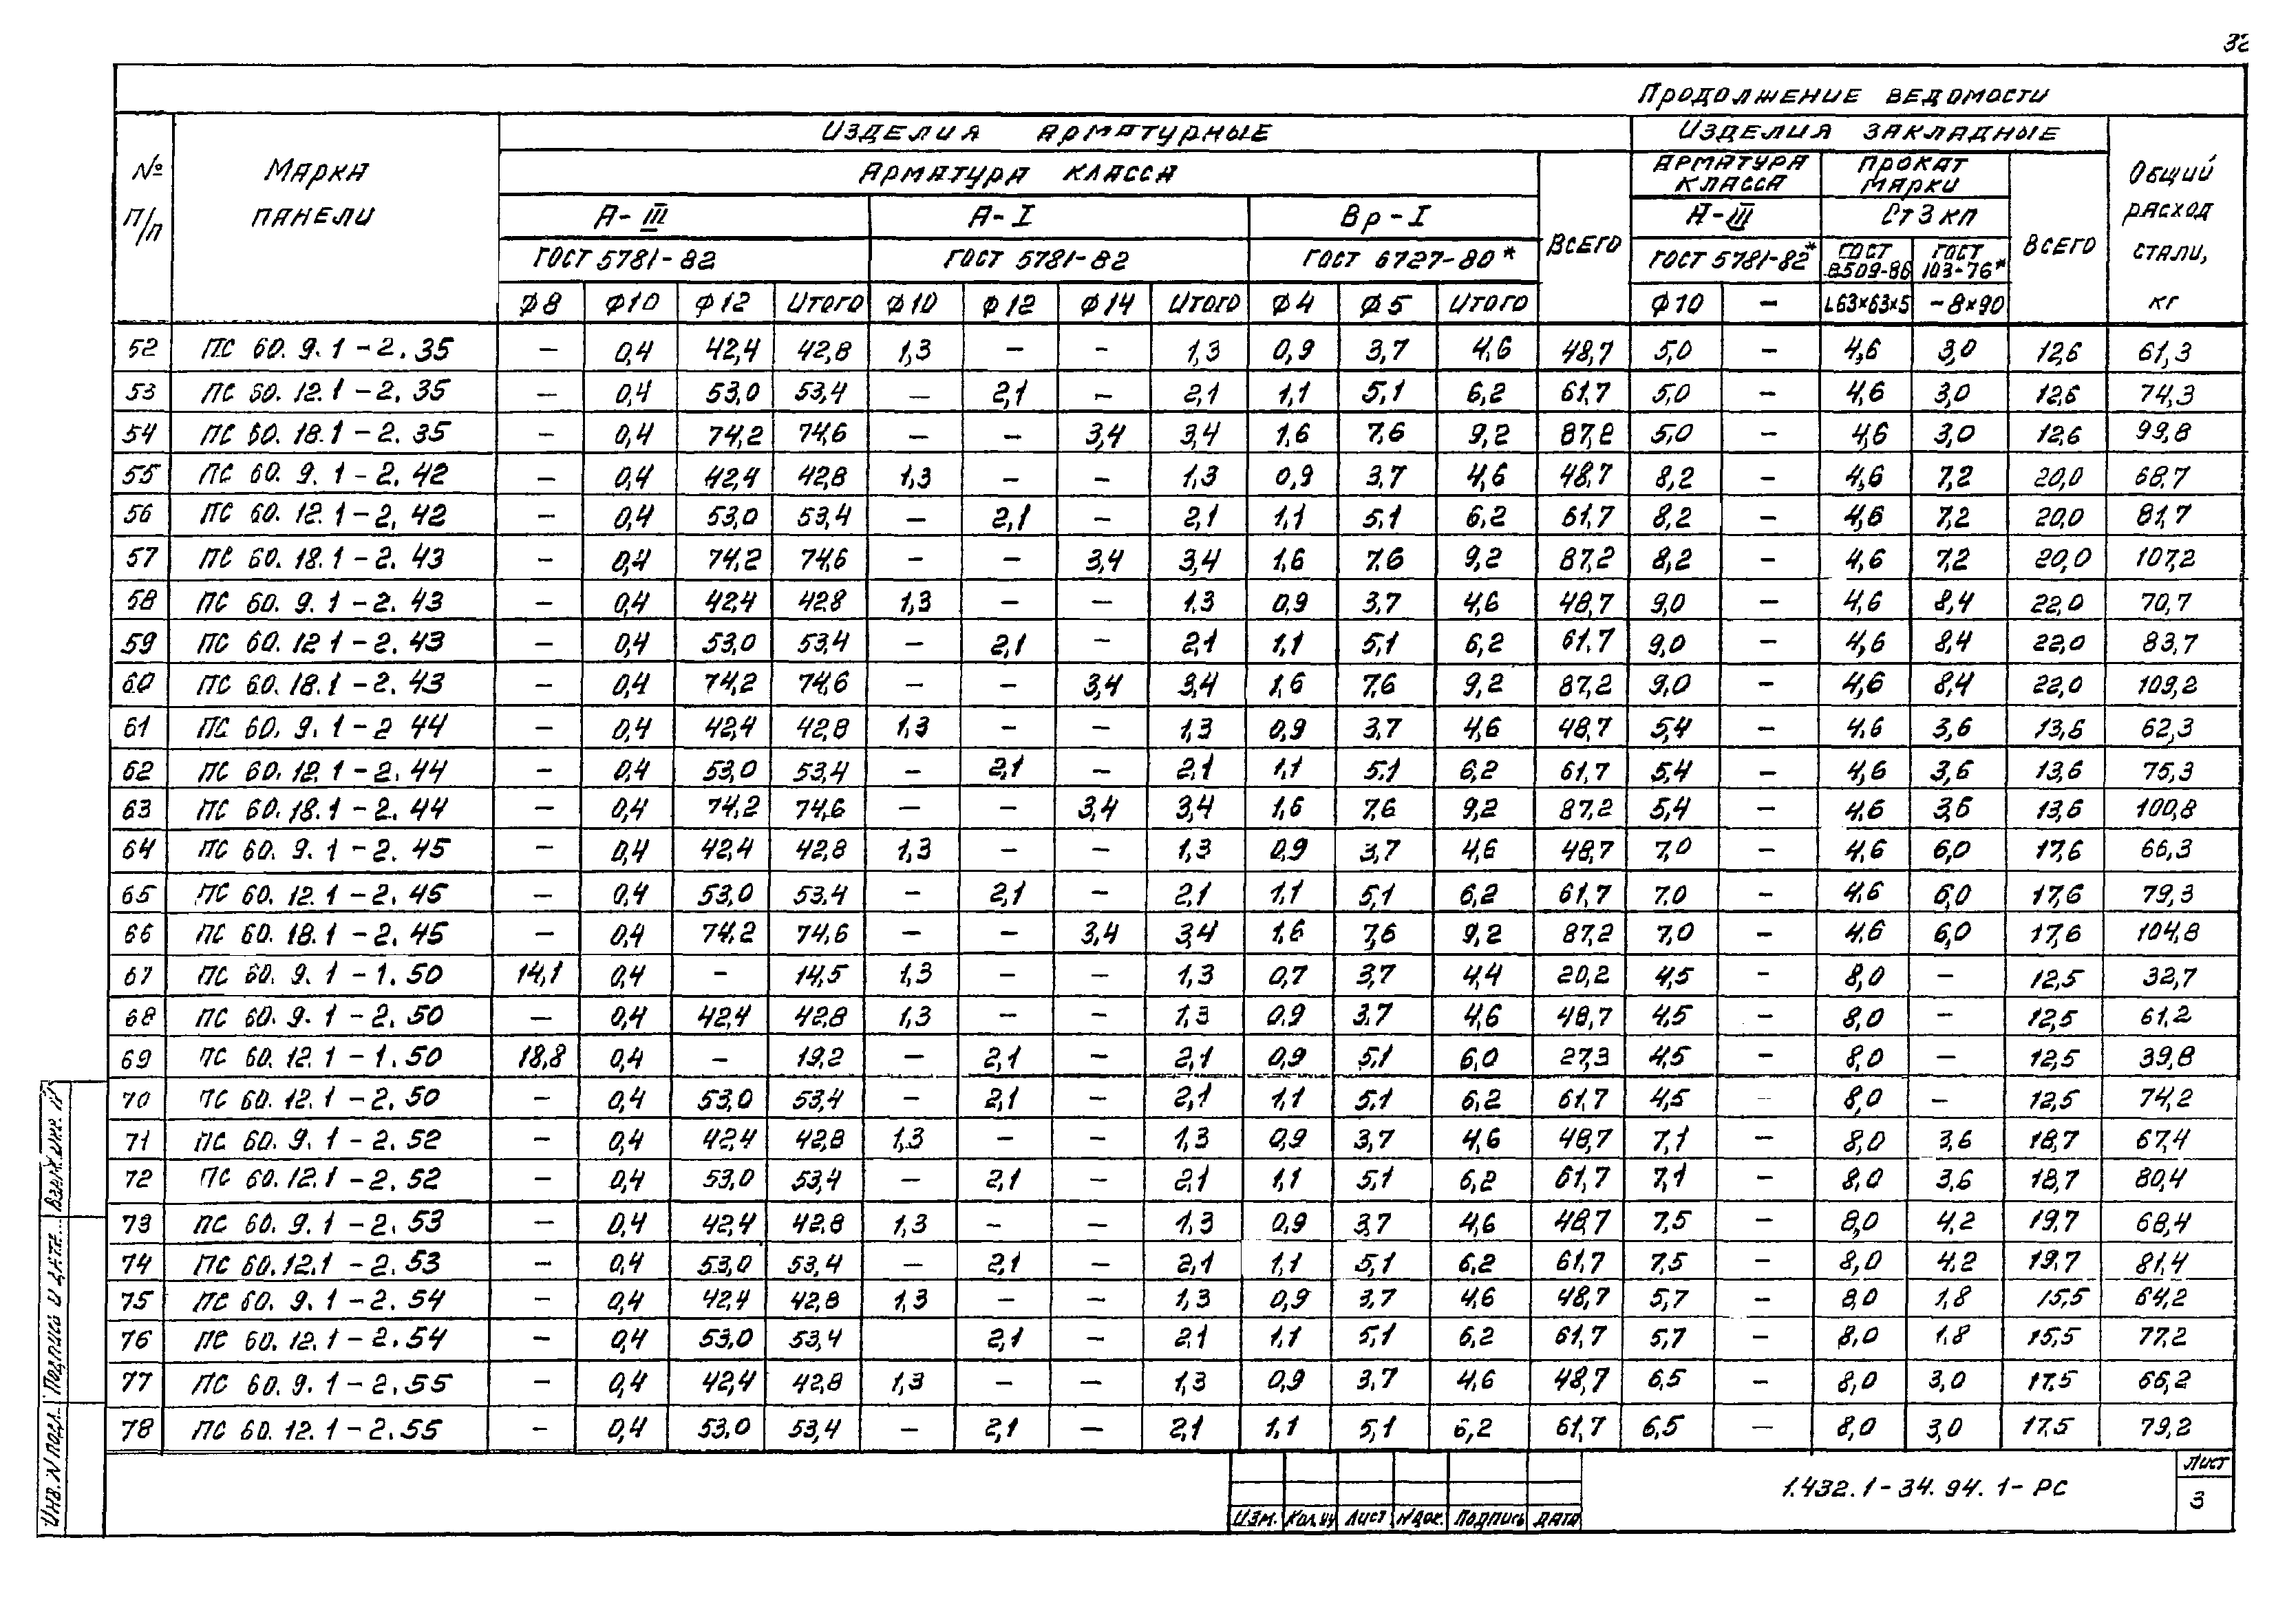 32
Продолжение ведомости
№ п/п
Марка панели
Изделия арматурные
Изделия закладные
Общий расход стали, кг
Арматура класса
Всего
Арматура класса
Прокат марки
Всего
А-III
А-I
Вр-I
А-III
Ст3кп
ГОСТ 5781-82
ГОСТ 5781-82
ГОСТ 6727-80*
ГОСТ 5781-82*
ГОСТ 8509-86
ГОСТ 103-76*
Ф8 Ф10 Ф12 Итого Ф10 Ф12 Ф14 Итого Ф4 Ф5 Итого Ф10 – L63×63×5 -8×90
52 ПС 60. 9. 1-2. 35 – 0,4 42,4 42,8 1,3 – – 1,3 0,9 3,7 4,6 48,7 5,0 – 4,6 3,0 12,6 61,3
53 ПС 60. 12. 1-2. 35 – 0,4 53,0 53,4 – 2,1 – 2,1 1,1 5,1 6,2 61,7 5,0 – 4,6 3,0 12,6 74,3
54 ПС 60. 18. 1-2. 35 – 0,4 74,2 74,6 – – 3,4 3,4 1,6 7,6 9,2 87,2 5,0 – 4,6 3,0 12,6 99,8
55 ПС 60. 9. 1-2. 42 – 0,4 42,4 42,8 1,3 – – 1,3 0,9 3,7 4,6 48,7 8,2 – 4,6 7,2 20,0 68,7
56 ПС 60. 12. 1-2. 42 – 0,4 53,0 53,4 – 2,1 – 2,1 1,1 5,1 6,2 61,7 8,2 – 4,6 7,2 20,0 81,7
57 ПС 60. 18. 1-2. 43 – 0,4 74,2 74,6 – – 3,4 3,4 1,6 7,6 9,2 87,2 8,2 – 4,6 7,2 20,0 107,2
58 ПС 60. 9. 1-2. 43 – 0,4 42,4 42,8 1,3 – – 1,3 0,9 3,7 4,6 48,7 9,0 – 4,6 8,4 22,0 70,7
59 ПС 60. 12 1-2. 43 – 0,4 53,0 53,4 – 2,1 – 2,1 1,1 5,1 6,2 61,7 9,0 – 4,6 8,4 22,0 83,7
60 ПС 60. 18. 1-2. 43 – 0,4 74,2 74,6 – – 3,4 3,4 1,6 7,6 9,2 87,2 9,0 – 4,6 8,4 22,0 109,2
61 ПС 60. 9. 1-2 44 – 0,4 42,4 42,8 1,3 – – 1,3 0,9 3,7 4,6 48,7 5,4 – 4,6 3,6 13,6 62,3
62 ПС 60. 12. 1-2. 44 – 0,4 53,0 53,4 – 2,1 – 2,1 1,1 5,1 6,2 61,7 5,4 – 4,6 3,6 13,6 75,3
63 ПС 60. 18. 1-2. 44 – 0,4 74,2 74,6 – – 3,4 3,4 1,6 7,6 9,2 87,2 5,4 – 4,6 3,6 13,6 100,8
64 ПС 60. 9. 1-2. 45 – 0,4 42,4 42,8 1,3 – – 1,3 0,9 3,7 4,6 48,7 7,0 – 4,6 6,0 17,6 66,3
65 ПС 60. 12. 1-2. 45 – 0,4 53,0 53,4 – 2,1 – 2,1 1,1 5,1 6,2 61,7 7,0 – 4,6 6,0 17,6 79,3
66 ПС 60. 18. 1-2. 45 – 0,4 74,2 74,6 – – 3,4 3,4 1,6 7,6 9,2 87,2 7,0 – 4,6 6,0 17,6 104,8
67 ПС 60. 9. 1-1. 50 14,1 0,4 – 14,5 1,3 – – 1,3 0,7 3,7 4,4 20,2 4,5 – 8,0 – 12,5 32,7
68 ПС 60. 9. 1-2. 50 – 0,4 42,4 42,8 1,3 – – 1,3 0,9 3,7 4,6 48,7 4,5 – 8,0 – 12,5 61,2
69 ПС 60. 12. 1-1. 50 18,8 0,4 – 19,2 – 2,1 – 2,1 0,9 5,1 6,0 27,3 4,5 – 8,0 – 12,5 39,8
70 ПС 60. 12. 1-2. 50 – 0,4 53,0 53,4 – 2,1 – 2,1 1,1 5,1 6,2 61,7 4,5 – 8,0 – 12,5 74,2
71 ПС 60. 9. 1-2. 52 – 0,4 42,4 42,8 1,3 – – 1,3 0,9 3,7 4,6 48,7 7,1 – 8,0 3,6 18,7 67,4
72 ПС 60. 12. 1-2. 52 – 0,4 53,0 53,4 – 2,1 – 2,1 1,1 5,1 6,2 61,7 7,1 – 8,0 3,6 18,7 80,4
73 ПС 60. 9. 1-2. 53 – 0,4 42,4 42,8 1,3 – – 1,3 0,9 3,7 4,6 48,7 7,5 – 8,0 4,2 19,7 68,4
74 ПС 60. 12. 1-2. 53 – 0,4 53,0 53,4 – 2,1 – 2,1 1,1 5,1 6,2 61,7 7,5 – 8,0 4,2 19,7 81,4
75 ПС 60. 9. 1-2. 54 – 0,4 42,4 42,8 1,3 – – 1,3 0,9 3,7 4,6 48,7 5,7 – 8,0 1,8 15,5 64,2
76 ПС 60. 12. 1-2. 54 – 0,4 53,0 53,4 2,1 – 2,1 1,1 5,1 6,2 61,7 5,7 – 8,0 1,8 15,5 77,2
77 ПС 60. 9. 1-2. 55 – 0,4 42,4 42,8 1,3 – – 1,3 0,9 3,7 4,6 48,7 6,5 – 8,0 3,0 17,5 66,2
78 ПС 60. 12. 1-2. 55 – 0,4 53,0 53,4 – 2,1 – 2,1 1,1 5,1 6,2 61,7 6,5 – 8,0 3,0 17,5 79,2
Инв. N подл. Подпись и дата Взам. инв. N
Изм. Кол.уч Лист Nдок. Подпись Дата
1.432.1-34. 94. 1- РС
Лист
3